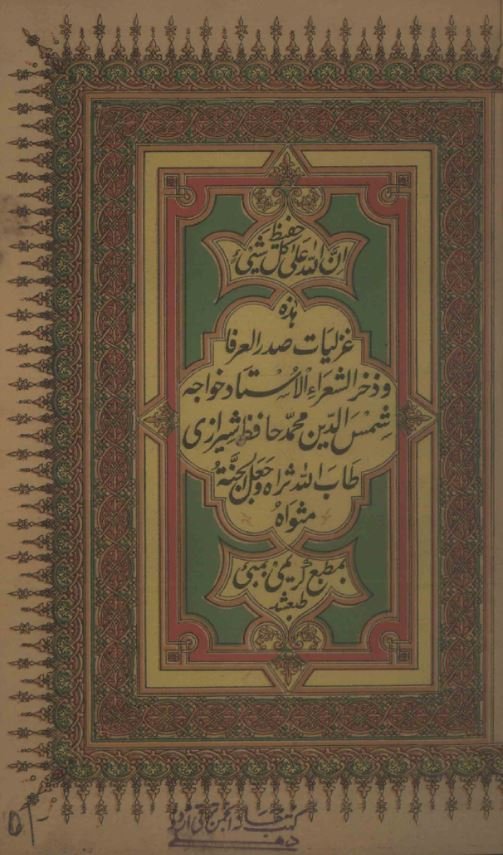 ان الله علی کل شیئ حفیظ
هذه
غزلیات صدر العرفا
و ذخر الشعراء الاستاد خواجه
شمس الدین محمد حافظ شیرازی
طاب الله ثراه و جعل الجنة
مثواه
بمطبع کریمی بمبئی
طبع شد
کتب خانه انجمن ترقی اردو